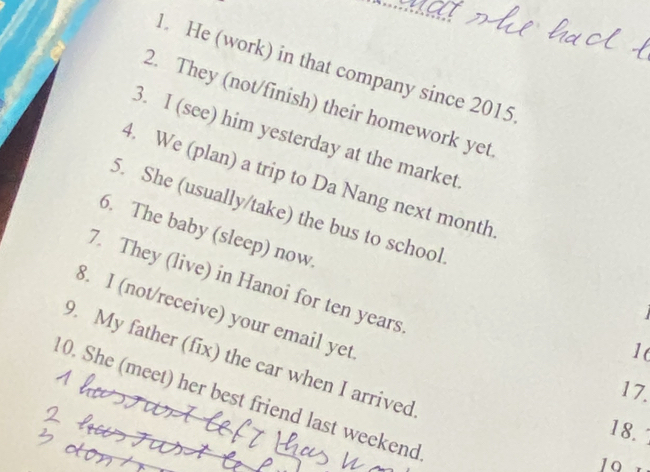 that she had
1. He (work) in that company since 2015.
2. They (not/finish) their homework yet.
3. I (see) him yesterday at the market.
4. We (plan) a trip to Da Nang next month.
5. She (usually/take) the bus to school.
6. The baby (sleep) now.
7. They (live) in Hanoi for ten years.
8. I (not/receive) your email yet.
9. My father (fix) the car when I arrived.
10. She (meet) her best friend last weekend.
1 has just left has
2 has just
3 don't
16
17.
18.
19